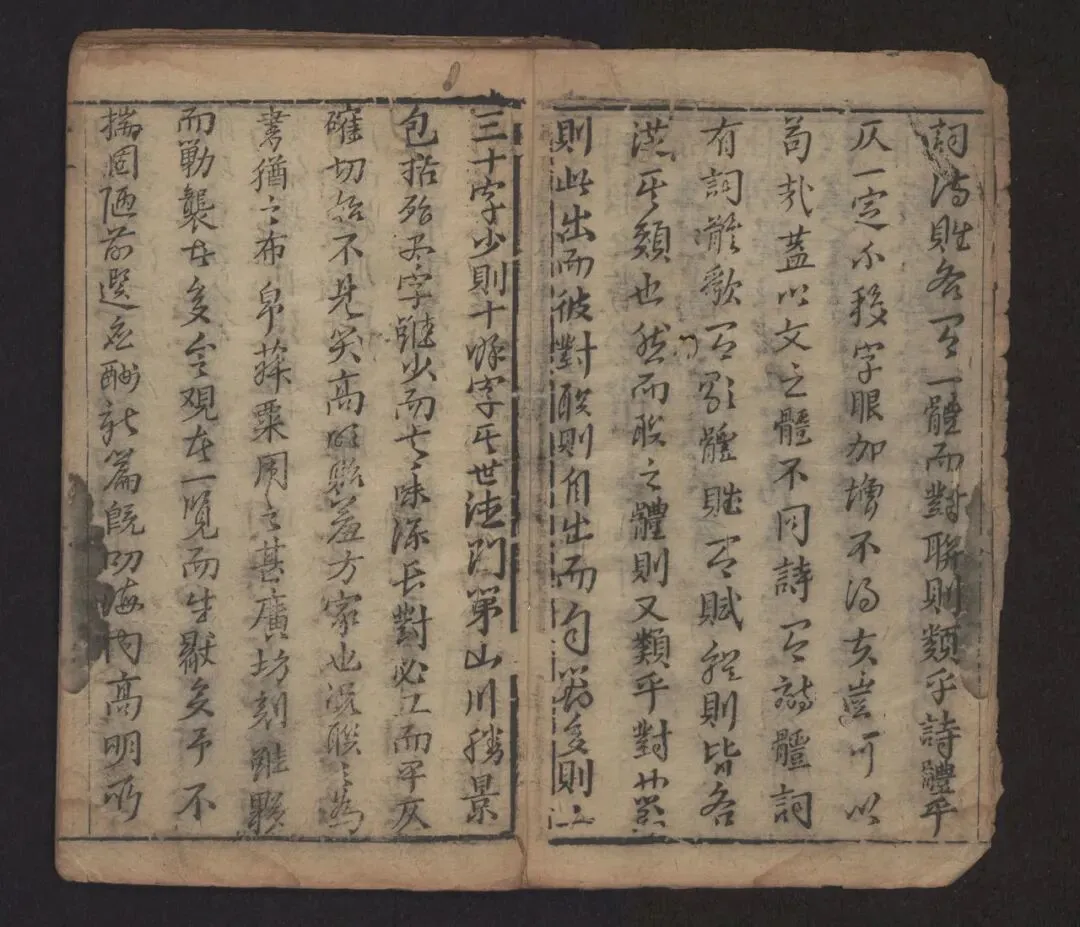 詞詩賦各有一體而對聯則類乎詩體平
仄一定不移字眼加增不得夫豈可以
苟哉蓋以文之體不同詩有詩體詞
有詞體歌有歌體賦有賦則皆各
其類也然而聯之體則又類乎對
則此出而彼對聯則自出而自對多則二
三十字少則十餘字其世法門第山川勝景
包括殆尽字雖少而意味深長對必工而平仄
確切始不見笑高明貽羞方家也況聯之為
書猶之布帛菽粟用之甚廣坊刻雖夥
而勦襲者多令觀者一覽而生厭矣予不
揣固陋前選應酬新篇既叨海內高明所